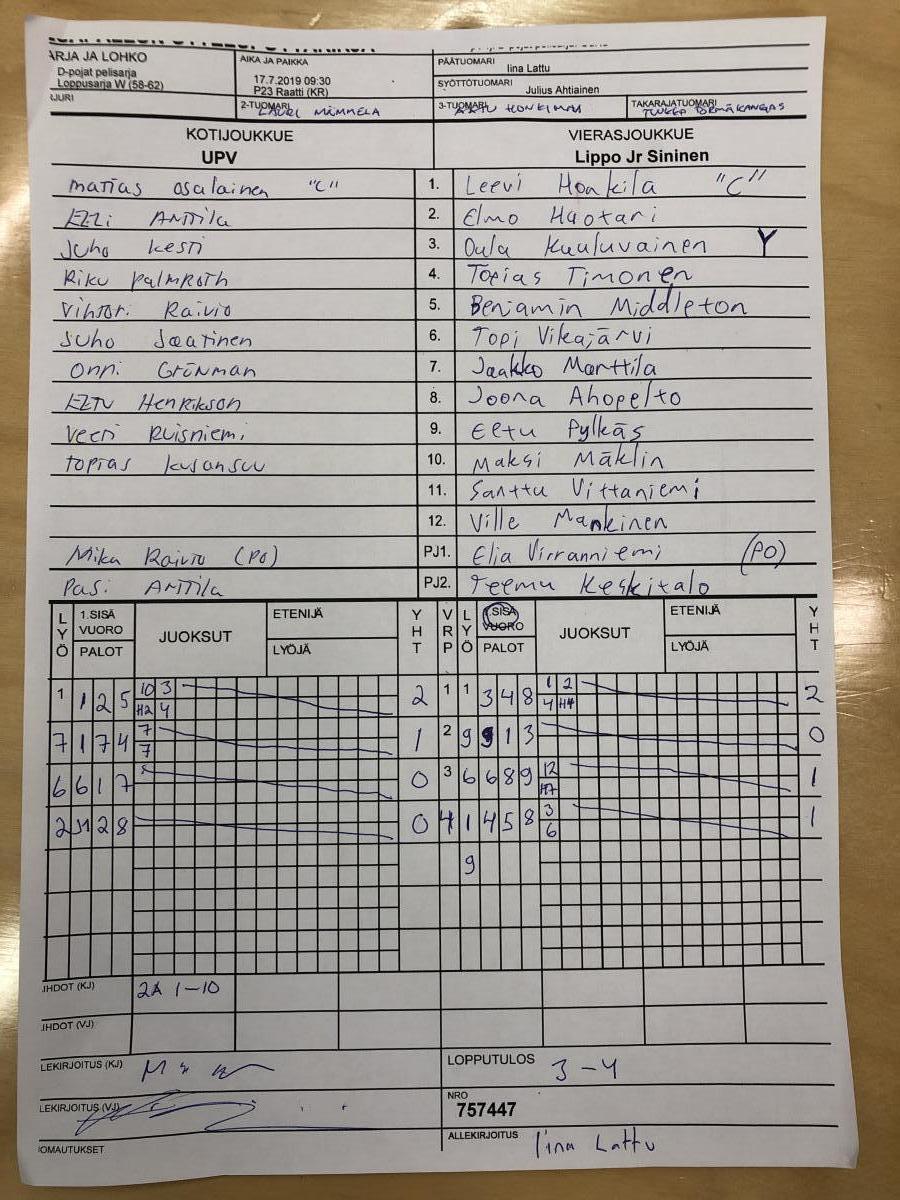 ARJA JA LOHKO
D-pojat pelisarja
Loppusarja W (58-62)
AIKA JA PAIKKA
17.7.2019 09:30
P23 Raatti (KR)
PÄÄTUOMARI
Iina Lattu
SYÖTTÖTUOMARI
Julius Ahtiainen
2-TUOMARI
LAURI MÄMMELÄ
3-TUOMARI
TAKARAJATUOMARI
TUUKKA TÖRMÄKANGAS
KOTIJOUKKUE
UPV
VIERASJOUKKUE
Lippo Jr Sininen
Matias Osalainen "C" 1. Leevi Honkila "C"
Anttila 2. Elmo Huotari
Juho Kesti 3. Oula Kuuluvainen Y
Riku Palmroth 4. Topias Timonen
Vihtori Raivio 5. Benjamin Middleton
Juho Saatinen 6. Topi Vikajärvi
Onni Grönman 7. Jaakko Marttila
Henrikson 8. Joona Ahopelto
Veeti Ruisniemi 9. Eetu Pylkäs
Topias Kusansuu 10. Maksi Mäklin
11. Santtu Vittaniemi
12. Ville Mankinen
Mika Raivio (PO) PJ1. Elia Virranniemi (PO)
Pasi Anttila PJ2. Teemu Keskitalo
LYÖ 1.SISÄ VUORO PALOT JUOKSUT ETENIJÄ LYÖJÄ YHT VRP LYÖ 1.SISÄ VUORO PALOT JUOKSUT ETENIJÄ LYÖJÄ YHT
1 1 2 5 10 3 2 1 1 3 4 8 1 2 2
H2 4 4 H4
7 1 7 4 7 1 2 9 9 1 3 0
7
6 6 1 7 0 3 6 6 8 9 12 1
H7
2 11 2 8 0 4 1 4 5 8 3 1
6
9
IHDOT (KJ) 2A 1-10
IHDOT (VJ)
LEKIRJOITUS (KJ)
LOPPUTULOS 3-4
LEKIRJOITUS (VJ)
NRO
757447
OMAUTUKSET
ALLEKIRJOITUS Iina Lattu